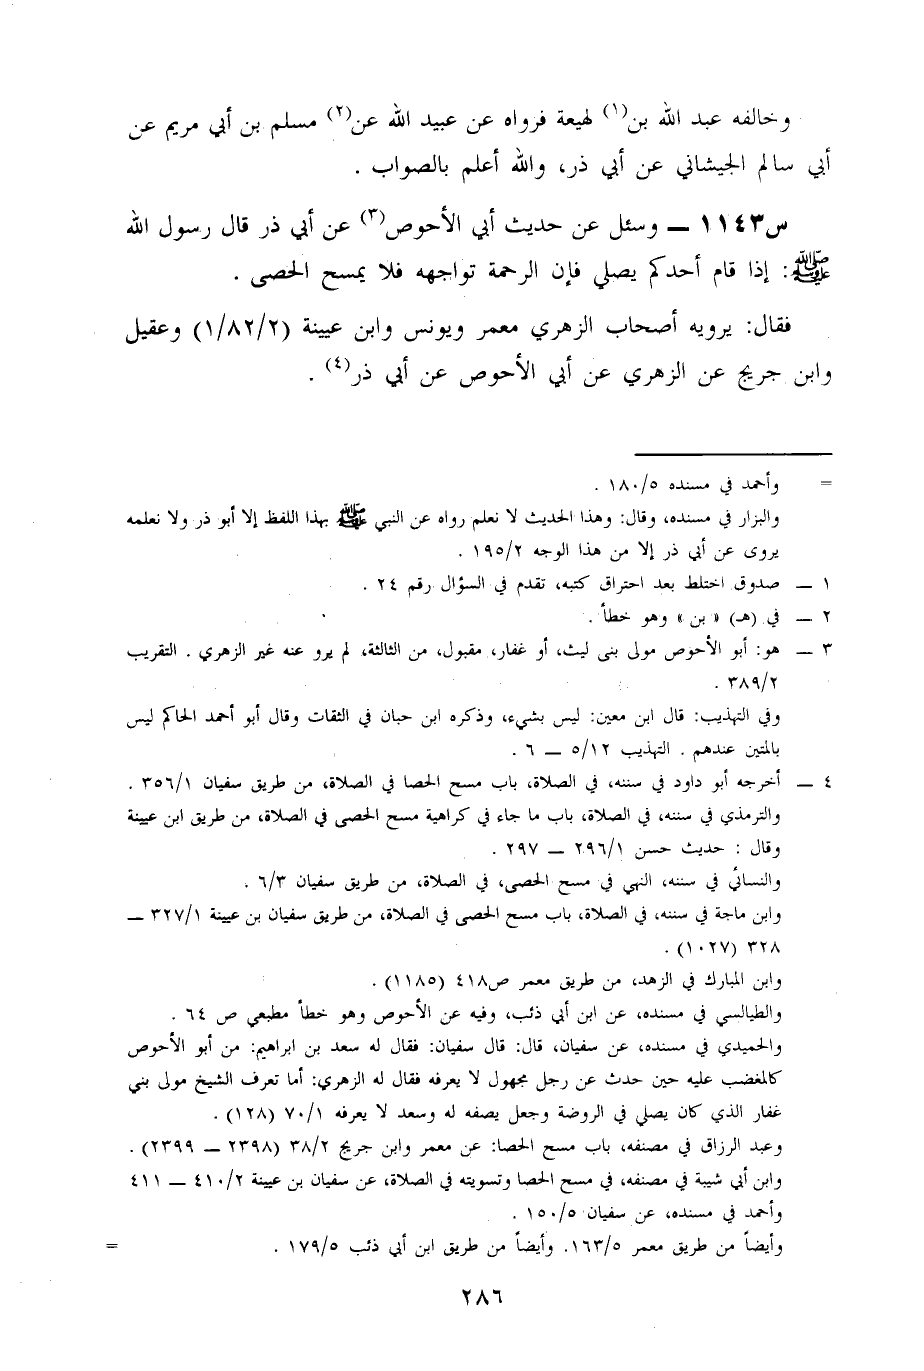 وخالفه عبد الله بن(١) لهيعة فرواه عن عبيد الله عن(٢) مسلم بن أبي مريم عن
أبي سالم الجيشاني عن أبي ذر، والله أعلم بالصواب .
س١١٤٣ ــ وسئل عن حديث أبي الأحوص(٣) عن أبي ذر قال رسول الله
ﷺ: إذا قام أحدكم يصلي فإن الرحمة تواجهه فلا يمسح الحصى .
فقال: يرويه أصحاب الزهري معمر ويونس وابن عيينة (١/٨٢/٢) وعقيل
وابن جريج عن الزهري عن أبي الأحوص عن أبي ذر(٤) .
= وأحمد في مسنده ١٨٠/٥ .
والبزار في مسنده، وقال: وهذا الحديث لا نعلم رواه عن النبي ﷺ بهذا اللفظ إلا أبو ذر ولا نعلمه
يروى عن أبي ذر إلا من هذا الوجه ١٩٥/٢ .
١ ــ صدوق اختلط بعد احتراق كتبه، تقدم في السؤال رقم ٢٤ .
٢ ــ في (هـ) « بن » وهو خطأ .
٣ ــ هو: أبو الأحوص مولى بنى ليث، أو غفار، مقبول، من الثالثة، لم يرو عنه غير الزهري . التقريب
٣٨٩/٢ .
وفي التهذيب: قال ابن معين: ليس بشيء، وذكره ابن حبان في الثقات وقال أبو أحمد الحاكم ليس
بالمتين عندهم . التهذيب ٥/١٢ ــ ٦ .
٤ ــ أخرجه أبو داود في سننه، في الصلاة، باب مسح الحصا في الصلاة، من طريق سفيان ٣٥٦/١ .
والترمذي في سننه، في الصلاة، باب ما جاء في كراهية مسح الحصى في الصلاة، من طريق ابن عيينة
وقال : حديث حسن ٢٩٦/١ ــ ٢٩٧ .
والنسائي في سننه، النهي في مسح الحصى، في الصلاة، من طريق سفيان ٦/٣ .
وابن ماجة في سننه، في الصلاة، باب مسح الحصى في الصلاة، من طريق سفيان بن عيينة ٣٢٧/١ ــ
٣٢٨ (١٠٢٧) .
وابن المبارك في الزهد، من طريق معمر ص٤١٨ (١١٨٥) .
والطيالسي في مسنده، عن ابن أبي ذئب، وفيه عن الأحوص وهو خطأ مطبعي ص ٦٤ .
والحميدي في مسنده، عن سفيان، قال: قال سفيان: فقال له سعد بن ابراهيم: من أبو الأحوص
كالمغضب عليه حين حدث عن رجل مجهول لا يعرفه فقال له الزهري: أما تعرف الشيخ مولى بني
غفار الذي كان يصلي في الروضة وجعل يصفه له وسعد لا يعرفه ٧٠/١ (١٢٨) .
وعبد الرزاق في مصنفه، باب مسح الحصا: عن معمر وابن جريج ٣٨/٢ (٢٣٩٨ ــ ٢٣٩٩) .
وابن أبي شيبة في مصنفه، في مسح الحصا وتسويته في الصلاة، عن سفيان بن عيينة ٤١٠/٢ ــ ٤١١
وأحمد في مسنده، عن سفيان ١٥٠/٥ .
وأيضاً من طريق معمر ١٦٣/٥. وأيضاً من طريق ابن أبي ذئب ١٧٩/٥ . =
٢٨٦